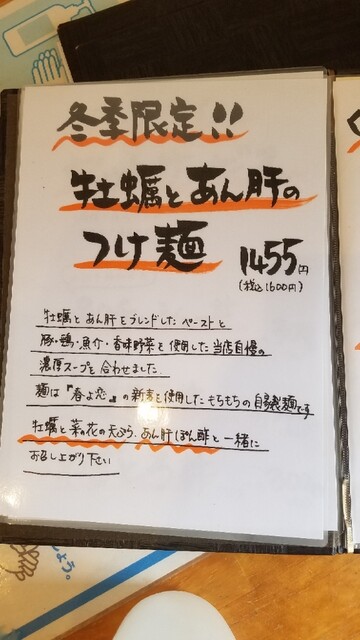 冬季限定!!
牡蠣とあん肝の
つけ麺
1455円
(税込1600円)
牡蠣とあん肝をブレンドしたペーストと
豚・鶏・魚介・香味野菜を使用した当店自慢の
濃厚スープを合わせました。
麺は『春よ恋』の新麦を使用したもちもちの自家製麺です
牡蠣と菜の花の天ぷら、あん肝ぽん酢と一緒に
お召し上がり下さい
しょう。